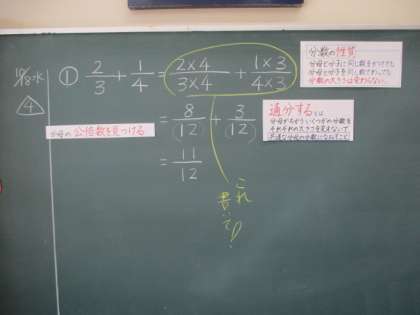 10/8 水
④
① 2/3 + 1/4 = 2×4/3×4 + 1×3/4×3
= 8/12 + 3/12
= 11/12
分母の公倍数を見つける
これ
書いて!
分数の性質
分母と分子に同じ数をかけても
分母と分子を同じ数でわっても
分数の大きさは変わらない。
通分するとは
分母がちがういくつかの分数を
それぞれの大きさを変えないで
共通な分母の分数になおすこと